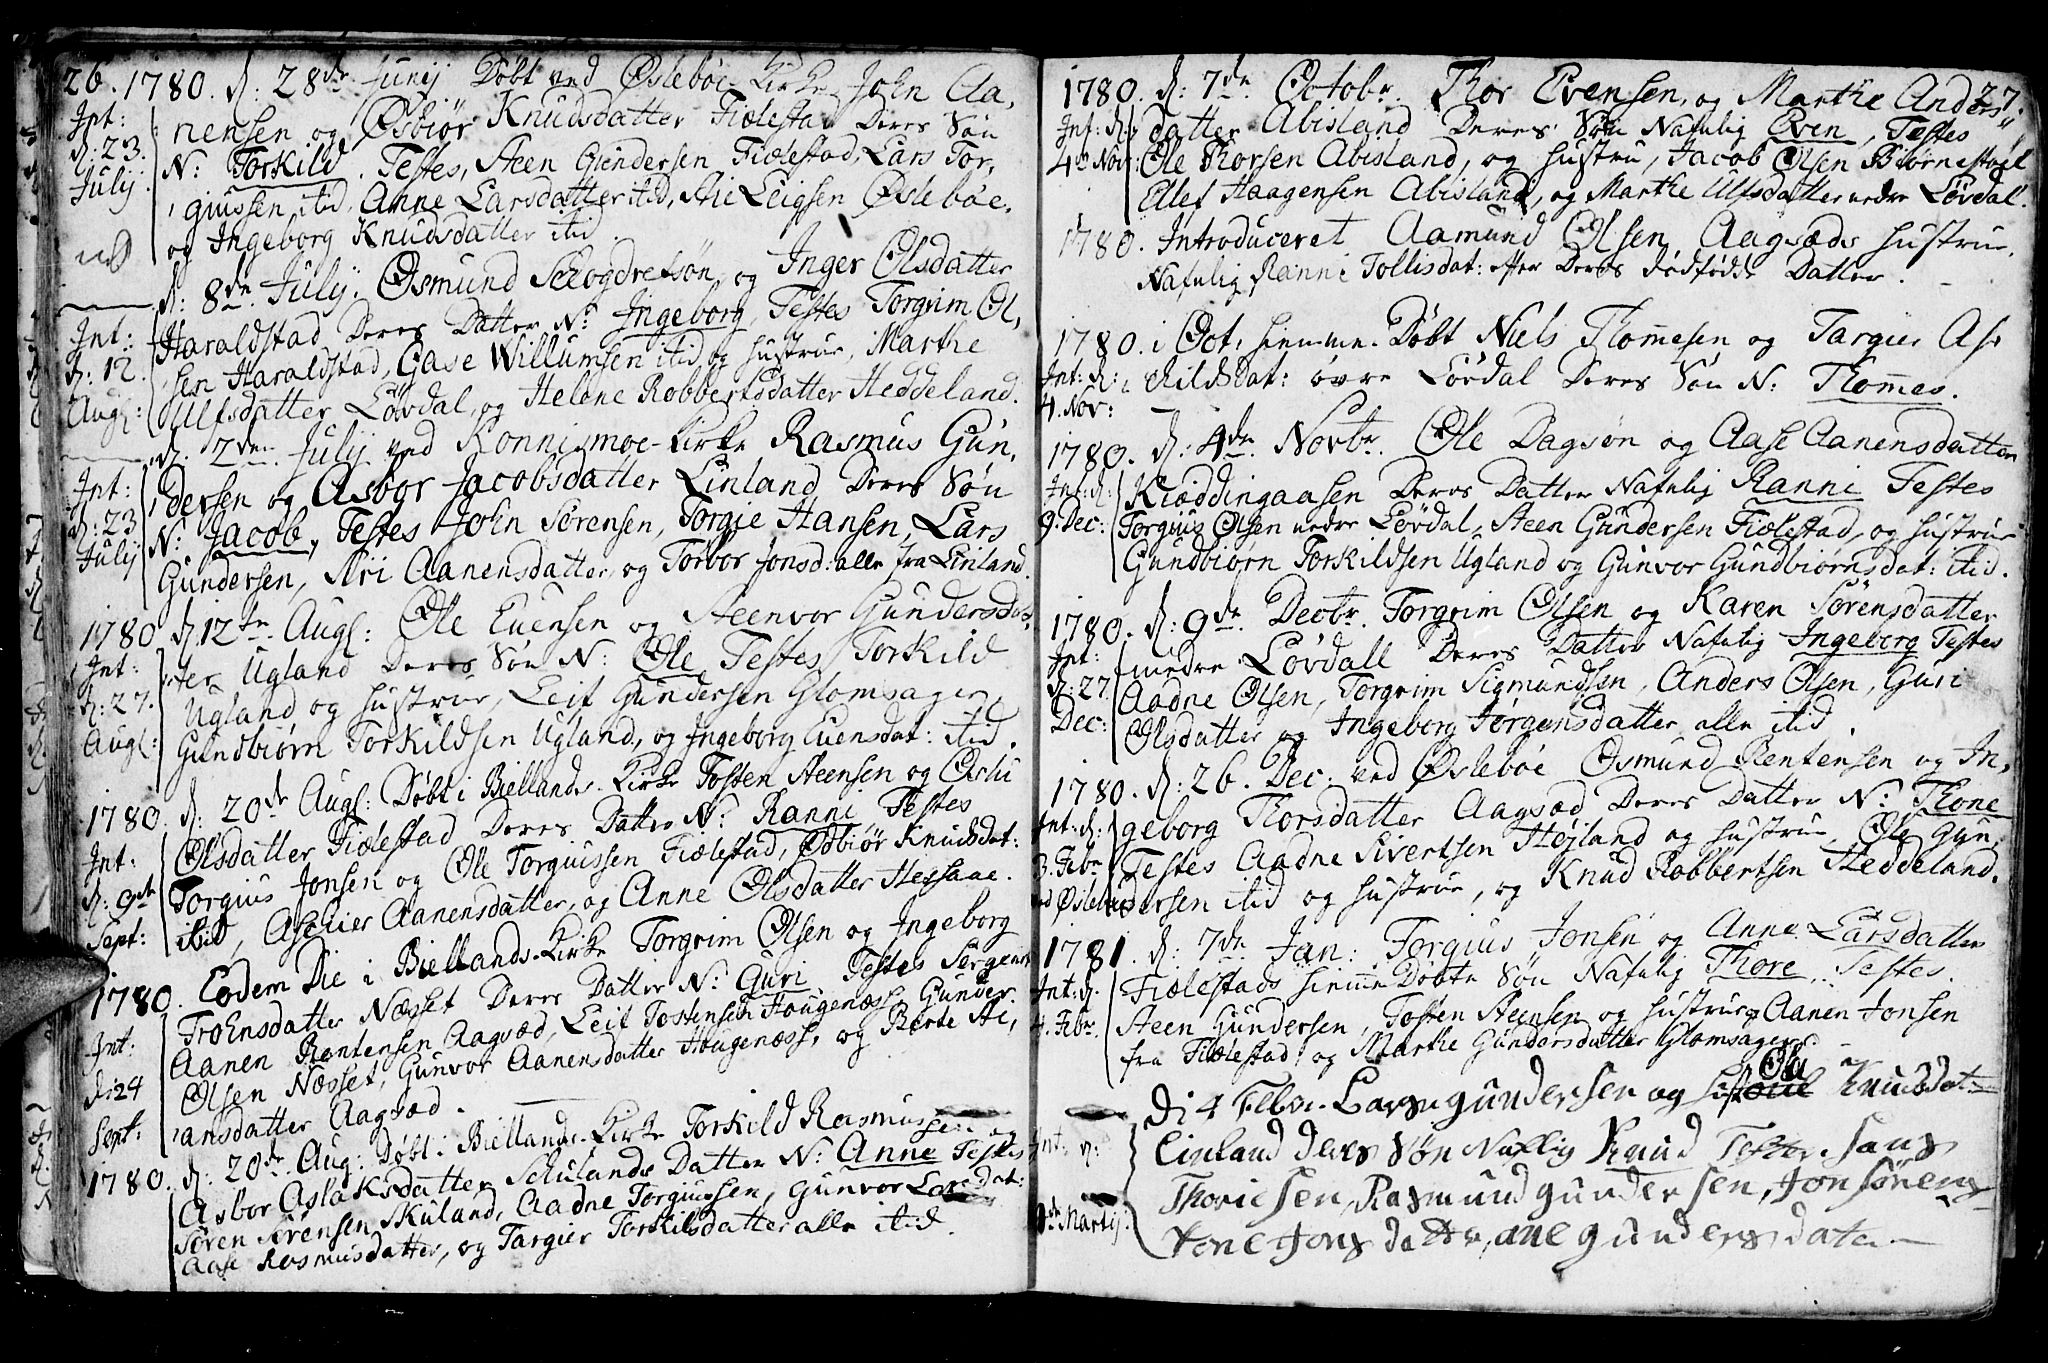 26. 1780. d: 28de Junij Døbt ved Øslebøe Kirke John Aa,
Int: nensen og Øsbiør Knudsdatter Fiælestad Deres Søn
d: 23. N: Torkild. Testes, Steen Gundersen Fiælestad, Lars Tor,
Julij. giussen itid, Anne Larsdatter itid, Ari Leigsen Øslebøe,
og Ingeborg Knudsdatter itid.
d: 8de Julij. Øsmund Schogdrefsøn, og Inger Olsdatter
Int: Haraldstad Deres Datter N: Ingeborg, Testes Torgrim Ol,
d: 12. sen Haraldstad, Gase Willumsen itid og hustrue, Marthe
Augs: Ulfsdatter Løvdal, og Helene Robbertsdatter Heddeland.
d. 2den Julij ved Konnismoe-Kirke Rasmus Gun,
Int: dersen og Asbor Jacobsdatter Linland Deres Søn
d: 23 N: Jacob, Testes John Sørensen, Torgie Hansen, Lars
Julij Gundersen, Ari Aanensdatter, og Torbor Jonsd: alle fra Linland.
1780 d. 12te Augs: Ole Euensen og Steenvor Gundersdat,
Int: ter Ugland Deres Søn N: Ole, Testes, Torkild
d: 27. Ugland og hustrue, Leif Gundersen Glomsager,
Augs: Gundbiørn Torkildsen Ugland, og Ingeborg Euensdat: itid.
1780. d: 20de Augs: Døbt i Biellands-Kirke Tosten Steensen og Oslu
Int: Olsdatter Fiælestad Deres Datter N: Ranni, Testes
d: 9de Torgius Jonsen og Ole Torgiussen Fiælestad, Øsbiør Knudsdat:
Sept: itid, Aschier Aanensdatter, og Anne Olsdatter Hessaae.
1780. Eodem Die i Biellands-Kirke Torgrim Olsen og Ingeborg
Troensdatter Næsset Deres Datter N: Guri Testes
Int: Aanen Rentensen Aagsæd, Leif Tostensen Hougenæss, Gunder
d: 24 Olsen Næsset, Gunvor Aanensdatter Hougenæss, og Berte
Sept: ansdatter Aagsæd.
1780. d: 20de Aug: Døbt i Biellands-Kirke Torkild Rasmussen og
Asbor Aslaksdatter Schulands Datter N: Anne Testes
Søren Sørensen Skuland, Aadne Torgiussen, Gunvor Larsdat:
Aase Rasmusdatter, og Targier Torkilsdatter alle itid.
27.
1780. d: 7de Octobr. Thor Evensen, og Marthe Anders,,
Int: d: datter Abisland Deres Søn Nafnlig Even, Testes
4de Nov: Ole Thorsen Abisland, og hustru, Jacob Olsen Biørnestøl
Ellef Haagensen Abisland, og Marthe Ulfsdatter nedre Løvdal.
1780. Introduceret Aamund Olsen Aagsæds hustrue
Nafnlig Ranni Tollisdat: efter Deres dødfødde Datter.
1780. i Oct: hiemme-Døbt Niels Thommesen og Targier As,
Int: d: kildsdat: øvre Løvdal Deres Søn N: Thommes.
4. Nov:
1780. d: 4de Novbr. Ole Dagsøn og Aase Aanensdatter
Int: d: Kiæddingaasen Deres Datter Nafnlig Ranni Testes
9. Dec: Torgius Olsen nedre Løvdal, Steen Gundersen Fiælestad, og hustrue
Gundbiørn Torkildsen Ugland og Gunvor Gundbiørnsdat: itid.
1780. d: 9de Decbr. Torgrim Olsen og Karen Sørensdatter
Int: nedre Løvdall Deres Datter Nafnlig Ingeborg Testes
d: 27. Aadne Olsen, Torgrim Sigmundsen, Anders Olsen, Guri
Dec: Olsdatter og Ingeborg Jørgensdatter alle itid.
1780. d: 26. Dec: ved Øslebøe Osmund Rentensen og In,
Int: d: geborg Thorsdatter Aagsæd Deres Datter N: Thone
3. Febr. Testes Aadne Sivertsen Høiland og hustrue, Ole Gun,
ved Øslebøe dersen itid og hustrue, og Knud Robbertsen Heddeland.
1781. d: 7de Jan: Torgius Jonsen og Anne Larsdatter
Int: d: Fiælestads hiemme Døbte Søn Nafnlig Thore. Testes.
4. Febr. Steen Gundersen, Tosten Steensen og hustrue, Aanen Jonsen
fra Fiælestad, og Marthe Gundersdatter Glomsager.
Di 4 Febr. Lars gundersen og Knudsdat
Int: d: Linland ders Søn Naflig Knud Tester hans
Thoriesen, Rasmund gundersen, Jon sørens
de Martij. tone Jons datter, ane gundersdater.